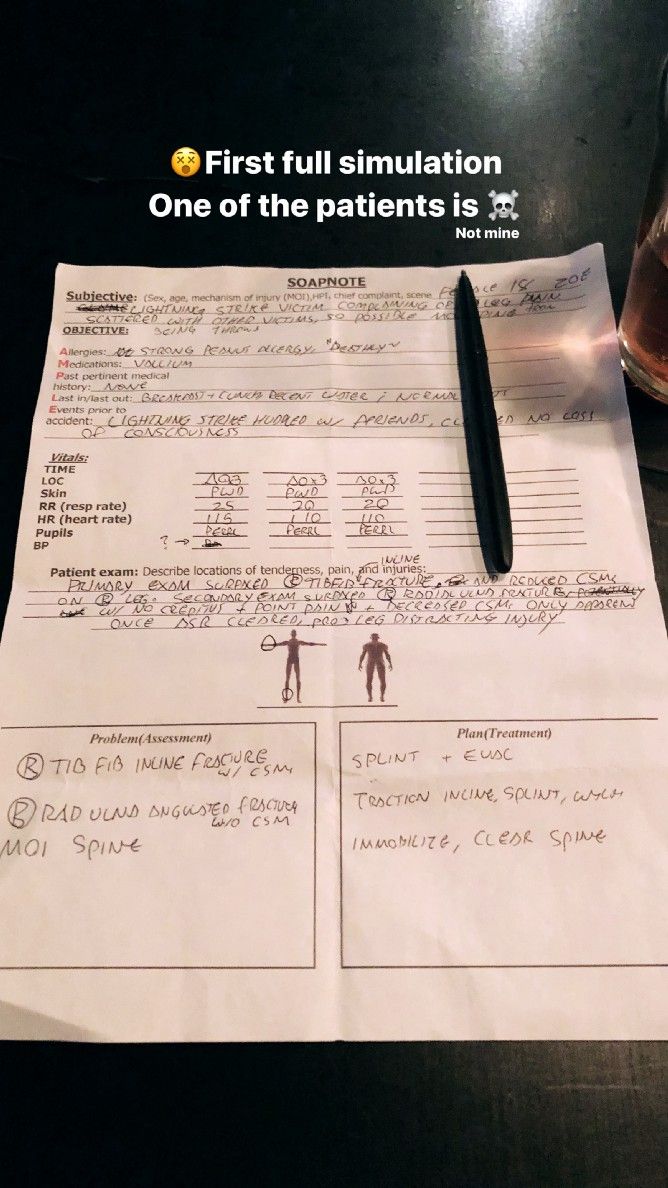 😵First full simulation
One of the patients is ☠️
Not mine
SOAPNOTE
Subjective: (Sex, age, mechanism of injury (MOI),HPI, chief complaint, scene FEMALE 18 ZOE
LIGHTNING STRIKE VICTIM COMPLAINING OF LEG PAIN
SCATTERED WITH OTHER VICTIMS, SO POSSIBLE FROM
OBJECTIVE: BEING THROWN
Allergies: STRONG PEANUT ALLERGY,
Medications: VALLIUM
Past pertinent medical
history: NONE
Last in/last out: BREAKFAST + LUNCH, RECENT WATER; NORMAL
Events prior to
accident: LIGHTNING STRIKE HUDDLED W/ FRIENDS, NO LOSS
OF CONSCIOUSNESS
Vitals:
TIME
LOC AO3 AOx3 AOx3
Skin PWD PWD PWD
RR (resp rate) 25 20 20
HR (heart rate) 115 110 110
Pupils PERRL PERRL PERRL
BP ? →
Patient exam: Describe locations of tenderness, pain, and injuries: INLINE
PRIMARY EXAM SURFACED (R) TIBFIB FRACTURE, AND REDUCED CSMs
ON (R) LEG. SECONDARY EXAM SURFACED (R) RADIAL ULNA FRACTURE
W/ NO CREPITUS + POINT PAIN + DECREASED CSM. ONLY APPARENT
ONCE ASR CLEARED, LEG DISTRACTING INJURY
Problem(Assessment)
(R) TIB FIB INLINE FRACTURE
W/ CSMs
(R) RAD ULNA ANGULATED FRACTURE
W/O CSM
MOI SPINE
Plan(Treatment)
SPLINT + EVAC
TRACTION INLINE, SPLINT,
IMMOBILIZE, CLEAR SPINE